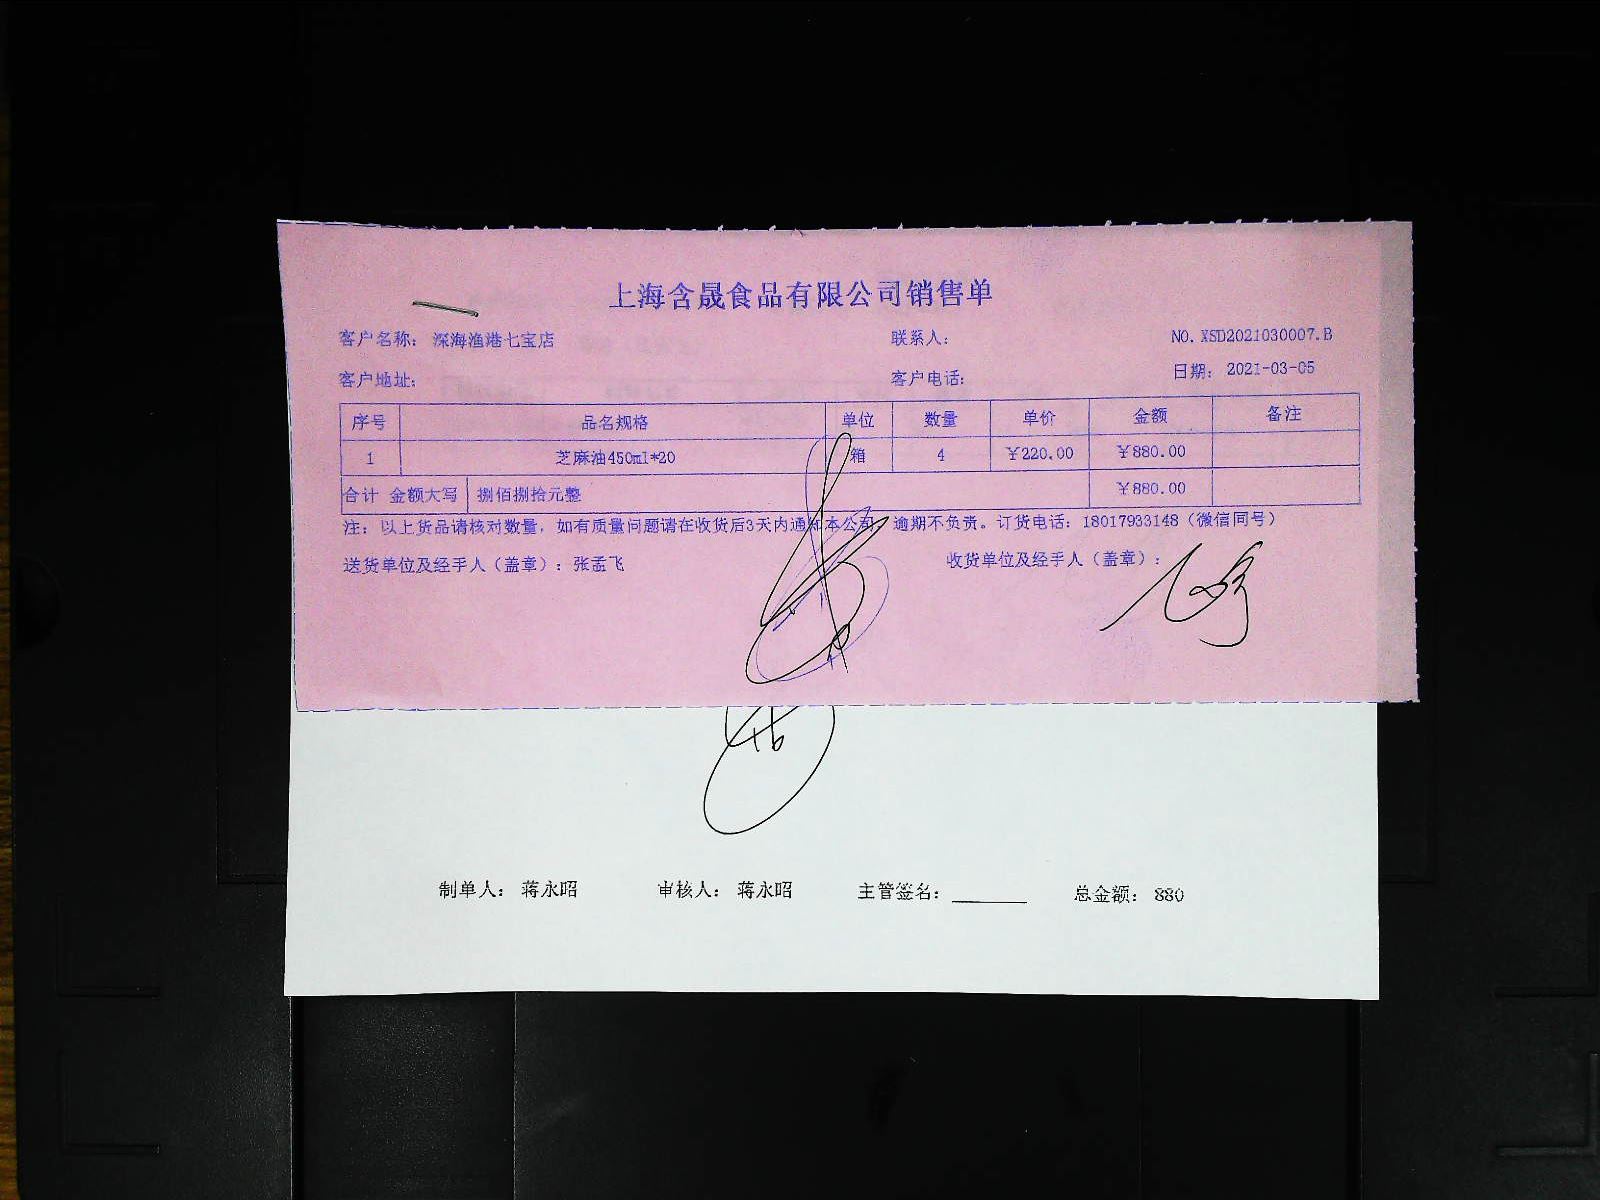 上海含晟食品有限公司销售单
客户名称: 深海渔港七宝店 联系人: NO. XSD2021030007.B
客户地址: 客户电话: 日期: 2021-03-05
序号 品名规格 单位 数量 单价 金额 备注
1 芝麻油450ml*20 箱 4 ¥220.00 ¥880.00
合计 金额大写 捌佰捌拾元整 ¥880.00
注: 以上货品请核对数量, 如有质量问题请在收货后3天内通知本公司, 逾期不负责。订货电话: 18017933148 (微信同号)
送货单位及经手人(盖章): 张孟飞 收货单位及经手人(盖章):
制单人: 蒋永昭 审核人: 蒋永昭 主管签名: 总金额: 880